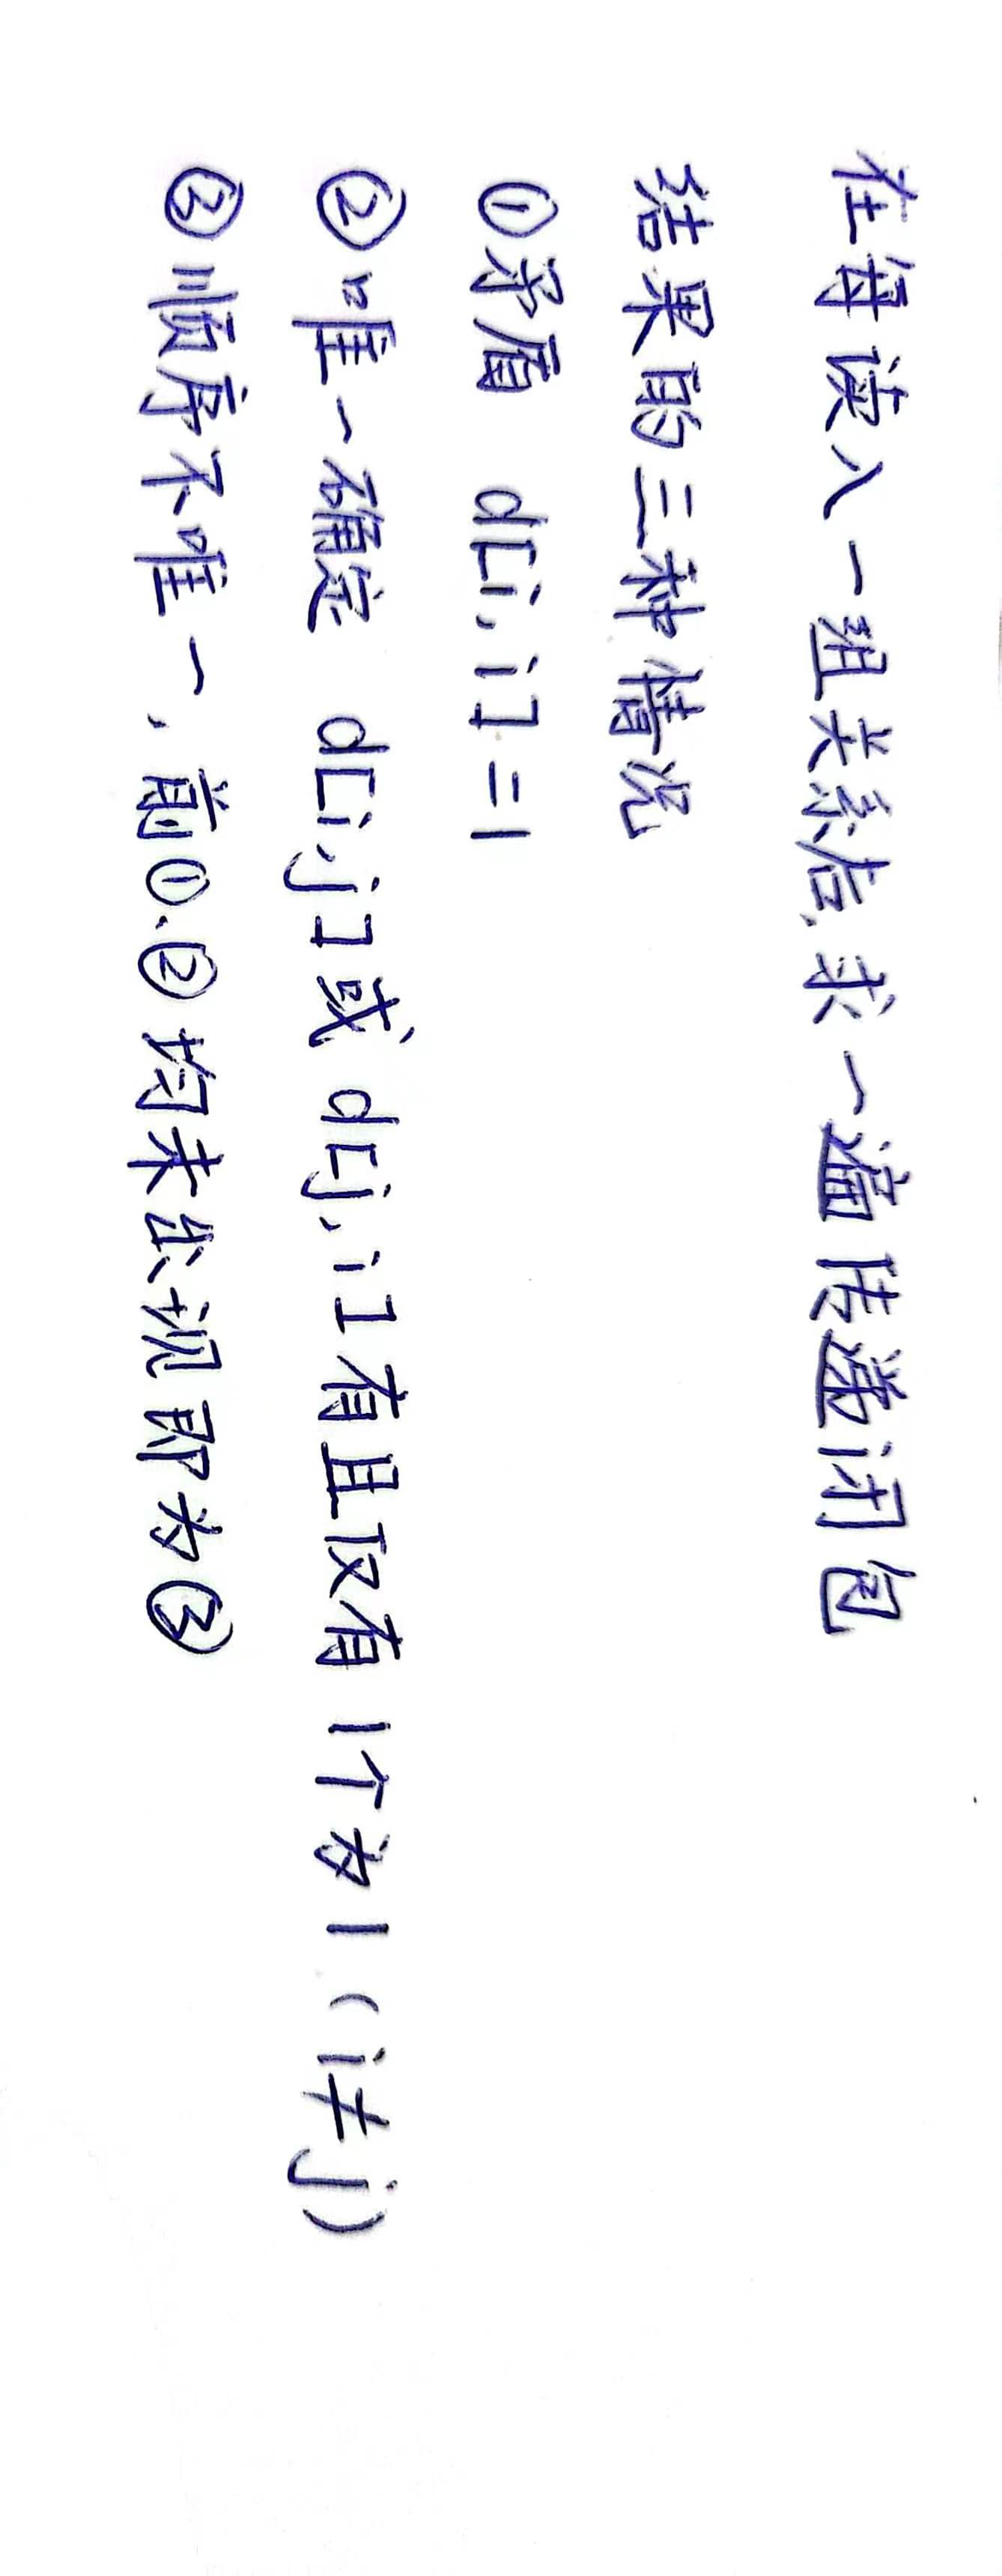 在每读入一组关系后,求一遍传递闭包
结果的三种情况
①矛盾 d[i,i]=1
②唯一确定 d[i,j]或 d[j,i]有且仅有1个为1(i≠j)
③顺序不唯一,前①、②均未出现即为③